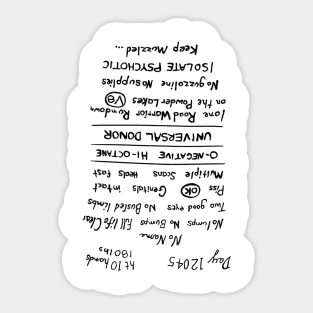 Day 12045
ht 10 hands
180 lbs
No Name
No lumps No Bumps Full life Clear
Two good eyes No Busted limbs
Piss OK Genitals intact
Multiple Scars Heals fast
O-NEGATIVE HI-OCTANE
UNIVERSAL DONOR
Lone Road Warrior Rundown
on the Powder Lakes V8
No guzzoline No supplies
ISOLATE PSYCHOTIC
Keep Muzzled...